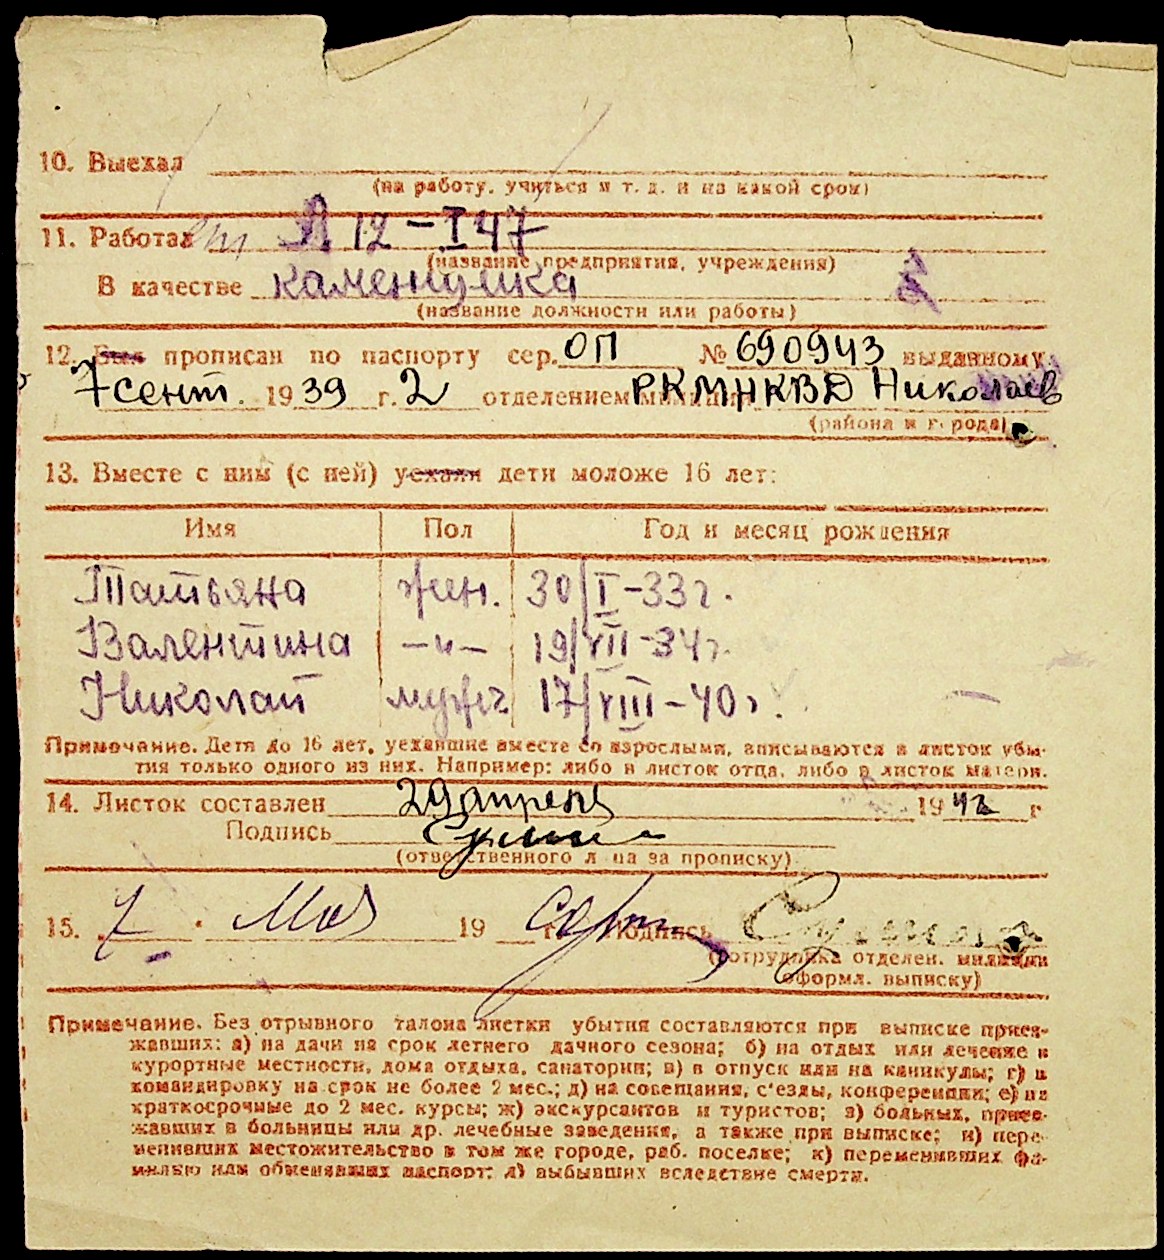 10. Выехал
(на работу, учиться и т. д. и на какой срок)
11. Работал А 12-I 47
(название предприятия, учреждения)
В качестве каменщика
(название должности или работы)
12. Был прописан по паспорту сер. ОП № 690943 выданному
7 сент. 1939 г. 2 отделением милиции РКМНКВД Николаев
(района и города)
13. Вместе с ним (с ней) уехали дети моложе 16 лет:
Имя Пол Год и месяц рождения
Татьяна жен. 30/I-33г.
Валентина -"- 19/VII-34г.
Николай мужч 17/VIII-40г.
Примечание. Дети до 16 лет, уехавшие вместе со взрослыми, вписываются в листок убы-
тия только одного из них. Например: либо в листок отца, либо в листок матери.
14. Листок составлен 29 апреля 1942 г
Подпись
(ответственного лица за прописку)
15. 7 Мая 19 г. Подпись
(сотрудника отделен. милиции
оформл. выписку)
Примечание. Без отрывного талона листки убытия составляются при выписке приез-
жавших: а) на дачи на срок летнего дачного сезона; б) на отдых или лечение в
курортные местности, дома отдыха, санатории; в) в отпуск или на каникулы; г) в
командировку на срок не более 2 мес.; д) на совещания, с'езды, конференции; е) на
краткосрочные до 2 мес. курсы; ж) экскурсантов и туристов; з) больных, приез-
жавших в больницы или др. лечебные заведения, а также при выписке; и) пере-
менивших местожительство в том же городе, раб. поселке; к) переменивших фа-
милию или обменявших паспорт; л) выбывших вследствие смерти.